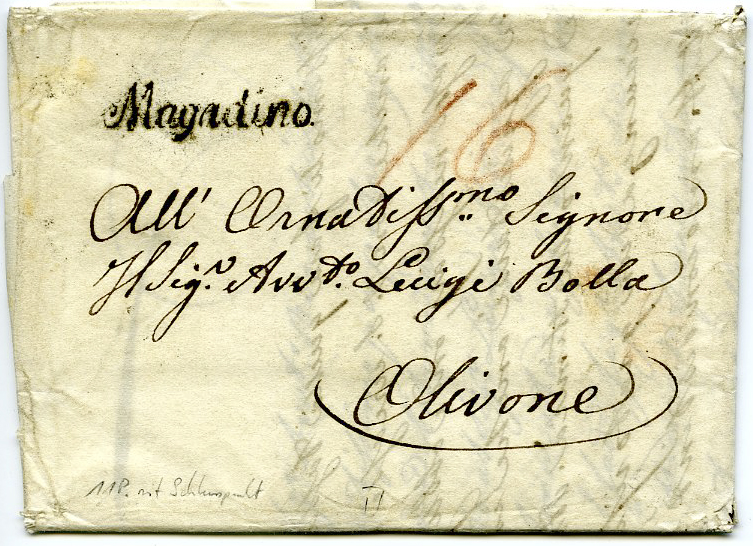 Magadino.
16
All' Ornatiss.mo Signore
Il Sig.r Avv.to Luigi Bolla
Olivone
11P. mit Schlusspunkt
II